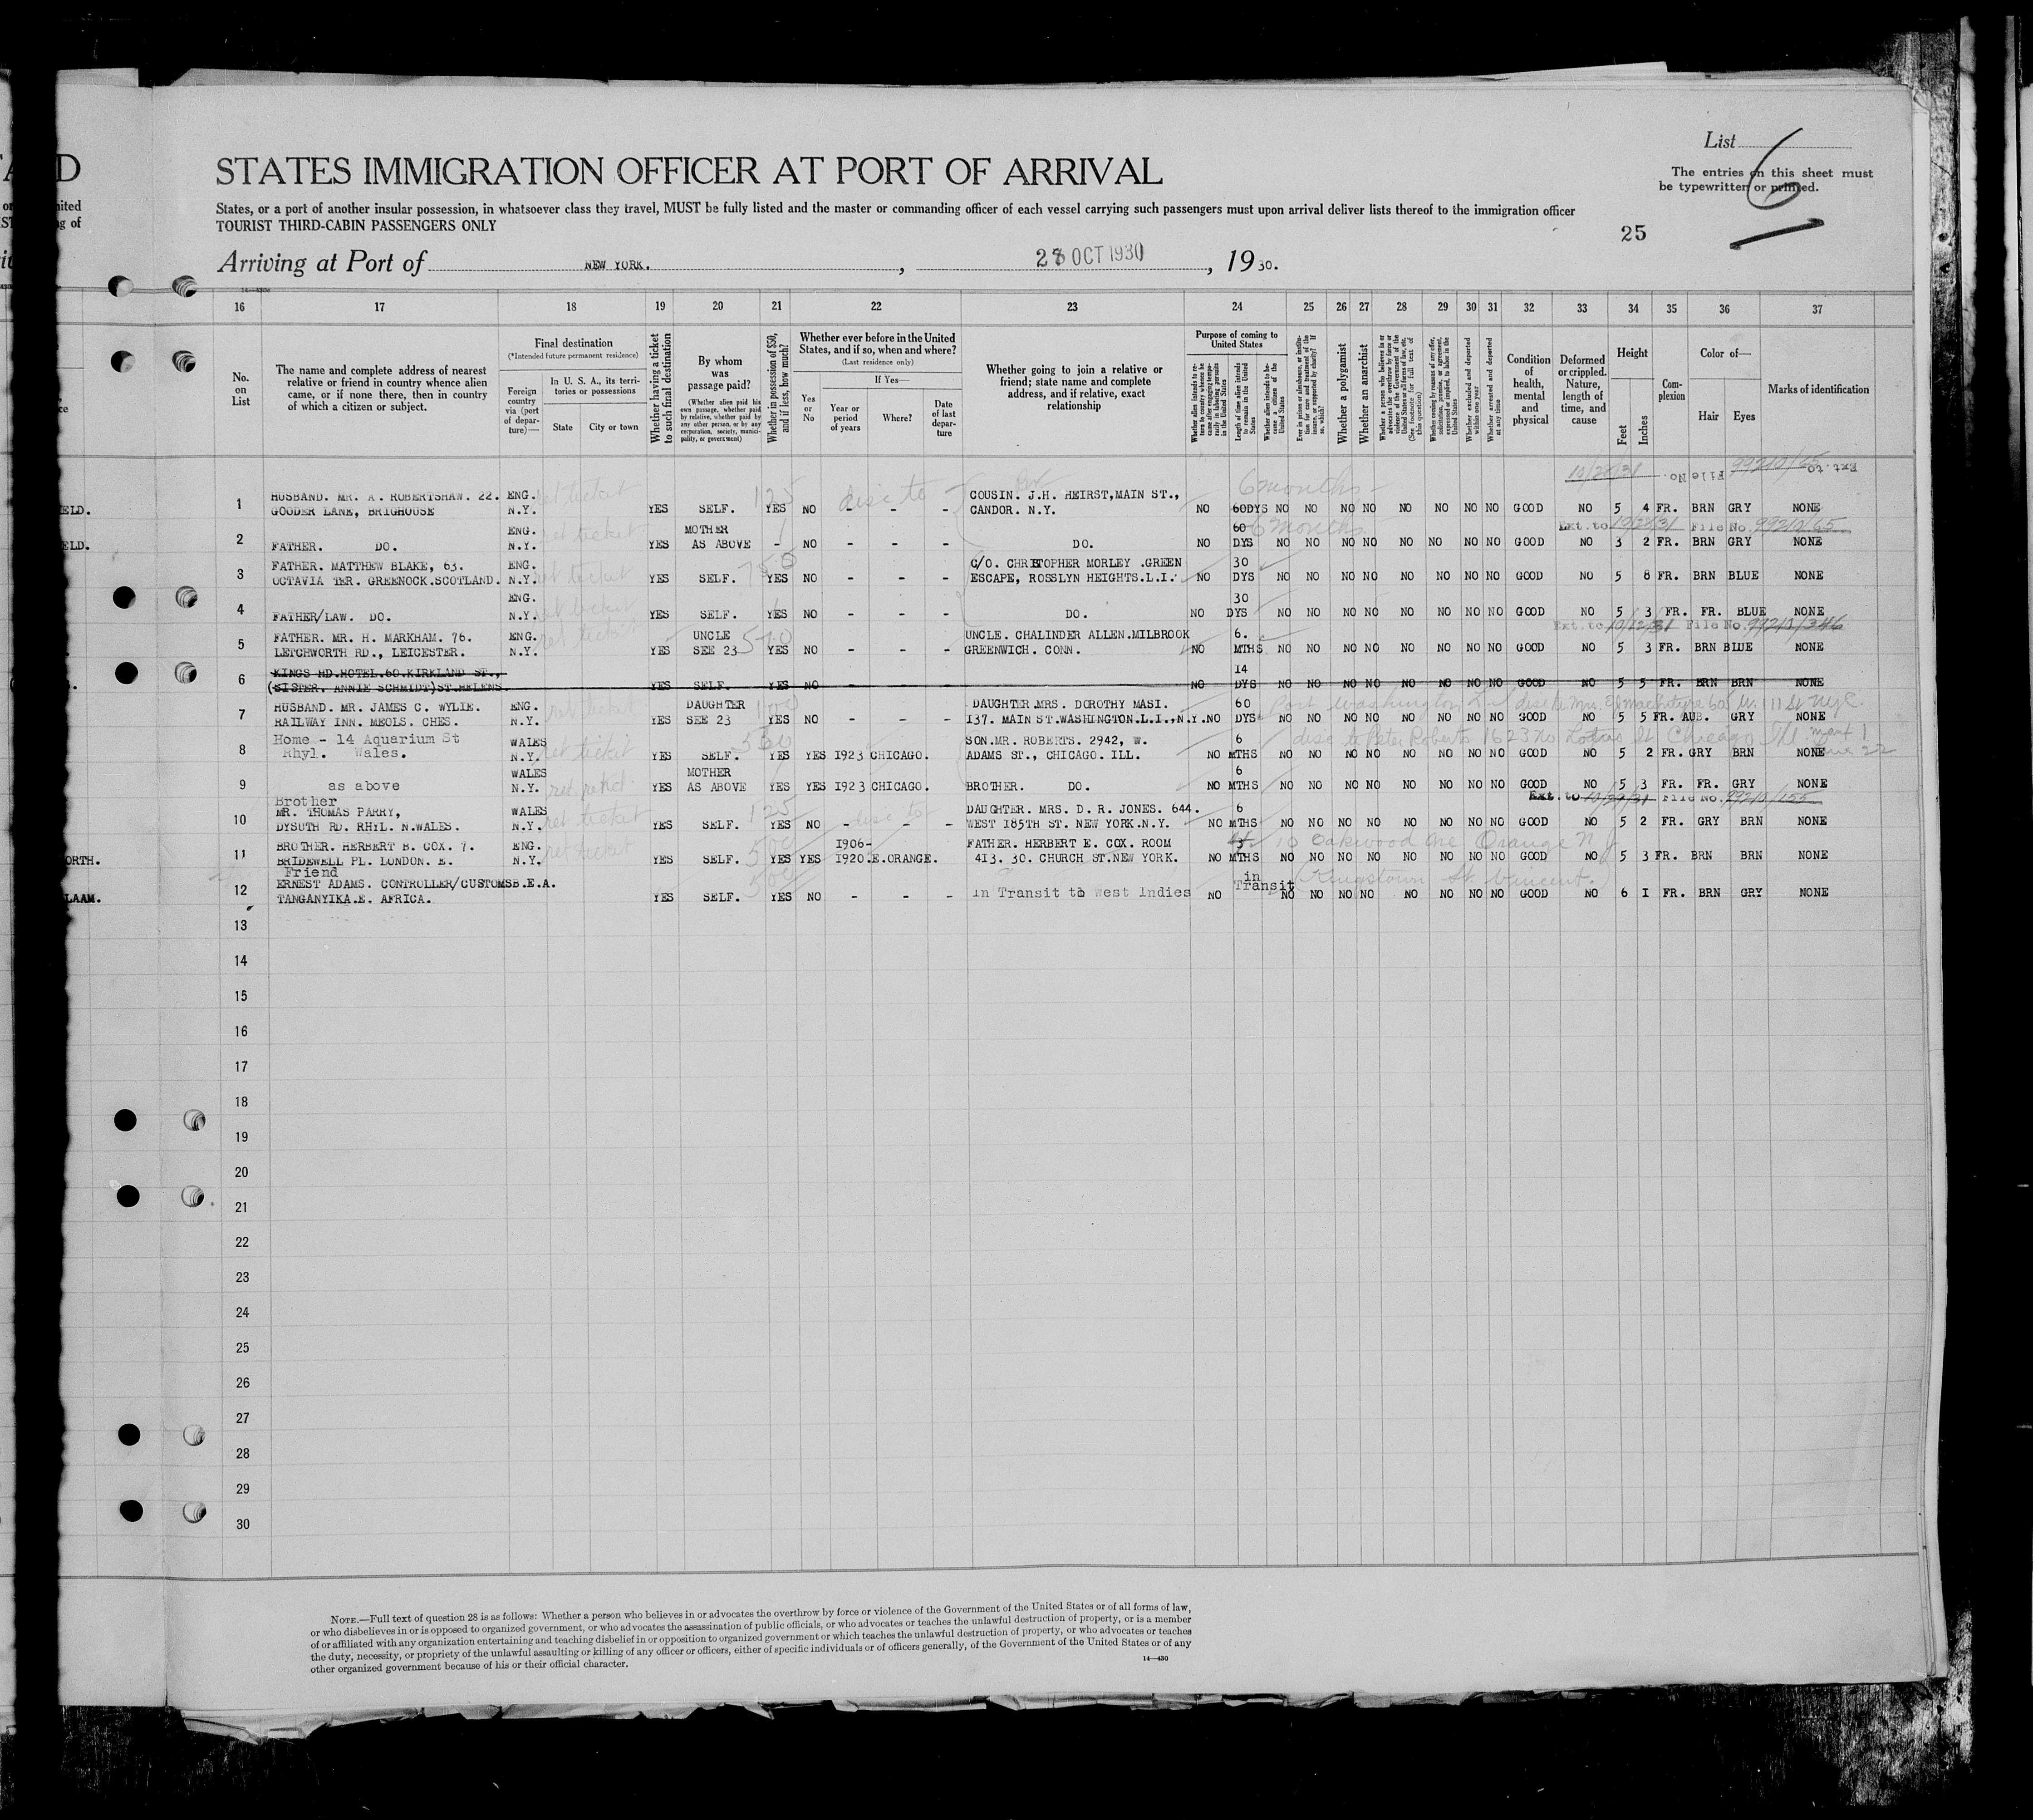 List 6
The entries on this sheet must
be typewritten or printed.
STATES IMMIGRATION OFFICER AT PORT OF ARRIVAL
States, or a port of another insular possession, in whatsoever class they travel, MUST be fully listed and the master or commanding officer of each vessel carrying such passengers must upon arrival deliver lists thereof to the immigration officer
TOURIST THIRD-CABIN PASSENGERS ONLY
25
Arriving at Port of NEW YORK. , 28 OCT 1930 , 1930.
16 17 18 19 20 21 22 23 24 25 26 27 28 29 30 31 32 33 34 35 36 37
No. on List
The name and complete address of nearest relative or friend in country whence alien came, or if none there, then in country of which a citizen or subject.
Final destination
(*Intended future permanent residence)
Foreign country via (port of departure)—
In U. S. A., its territories or possessions
State City or town
Whether having a ticket to such final destination
By whom was passage paid?
(Whether alien paid his own passage, whether paid by relative, whether paid by any other person, or by any corporation, society, municipality, or government)
Whether in possession of $50, and if less, how much?
Whether ever before in the United States, and if so, when and where?
(Last residence only)
Yes or No
If Yes—
Year or period of years Where? Date of last departure
Whether going to join a relative or friend; state name and complete address, and if relative, exact relationship
Purpose of coming to United States
Length of time alien intends to remain in the United States
Whether a polygamist
Whether an anarchist
Condition of health, mental and physical
Deformed or crippled. Nature, length of time, and cause
Height
Feet Inches
Complexion
Color of—
Hair Eyes
Marks of identification
10/28/31 File No. 99210/65 Ext. to
1 HUSBAND. MR. A. ROBERTSHAW. 22. GOODER LANE, BRIGHOUSE ENG. N.Y. ret ticket YES SELF. 125 YES NO - - - disc to COUSIN. J.H. HEIRST,MAIN ST., CANDOR. N.Y. NO 60DYS 6 months NO NO NO NO NO NO NO NO GOOD NO 5 4 FR. BRN GRY NONE
Ext. to 10/28/31 File No. 99210/65
2 FATHER. DO. ENG. N.Y. ret ticket YES MOTHER AS ABOVE - NO - - - DO. NO 60 DYS 6 months NO NO NO NO NO NO NO NO GOOD NO 3 2 FR. BRN GRY NONE
3 FATHER. MATTHEW BLAKE, 63. OCTAVIA TER. GREENOCK.SCOTLAND. ENG. N.Y. ret ticket YES SELF. YES NO - - - C/O. CHRISTOPHER MORLEY .GREEN ESCAPE, ROSSLYN HEIGHTS.L.I. NO 30 DYS NO NO NO NO NO NO NO NO GOOD NO 5 8 FR. BRN BLUE NONE
4 FATHER/LAW. DO. ENG. N.Y. ret ticket YES SELF. YES NO - - - DO. NO 30 DYS NO NO NO NO NO NO NO NO GOOD NO 5 3 FR. FR. BLUE NONE
Ext. to 10/12/31 File No. 99210/346
5 FATHER. MR. H. MARKHAM. 76. LETCHWORTH RD., LEICESTER. ENG. N.Y. ret ticket YES UNCLE SEE 23 YES NO - - - UNCLE. CHALINDER ALLEN.MILBROOK GREENWICH. CONN. NO 6. MTHS NO NO NO NO NO NO NO NO GOOD NO 5 3 FR. BRN BLUE NONE
6 KINGS HD.HOTEL.60.KIRKLAND ST., (SISTER. ANNIE SCHMIDT)ST.HELENS. YES SELF. YES NO - - - NO 14 DYS NO NO NO NO NO NO NO NO GOOD NO 5 5 FR. BRN BRN NONE
7 HUSBAND. MR. JAMES C. WYLIE. RAILWAY INN. MEOLS. CHES. ENG. N.Y. ret ticket YES DAUGHTER SEE 23 100 YES NO - - - DAUGHTER MRS. DOROTHY MASI. 137. MAIN ST.WASHINGTON.L.I.,N.Y. NO 60 DYS NO NO NO NO NO NO NO NO GOOD NO 5 5 FR. AUB. GRY NONE
Port Washington L I disc to Mrs. E. MacIntyre 605 W. 111 St NYC.
8 Home - 14 Aquarium St Rhyl. Wales. WALES N.Y. ret ticket YES SELF. 500 YES YES 1923 CHICAGO. SON.MR. ROBERTS. 2942, W. ADAMS ST., CHICAGO. ILL. NO 6 MTHS NO NO NO NO NO NO NO NO GOOD NO 5 2 FR. GRY BRN NONE
disc to Peter Roberts 1623 No Lotus St Chicago Ill
9 as above WALES N.Y. YES MOTHER AS ABOVE YES YES 1923 CHICAGO. BROTHER. DO. NO 6 MTHS NO NO NO NO NO NO NO NO GOOD NO 5 3 FR. FR. GRY NONE
Ext. to 10/27/31 File No. 99210/155
10 Brother MR. THOMAS PARRY, DYSUTH RD. RHYL. N.WALES. WALES N.Y. ret ticket YES SELF. 125 YES NO - - - disc to DAUGHTER. MRS. D. R. JONES. 644. WEST 185TH ST. NEW YORK.N.Y. NO 6 MTHS NO NO NO NO NO NO NO NO GOOD NO 5 2 FR. GRY BRN NONE
11 BROTHER. HERBERT B. COX. 7. BRIDEWELL PL. LONDON. E. ENG. N.Y. ret ticket YES SELF. 500 YES YES 1906-1920. E.ORANGE. FATHER. HERBERT E. COX. ROOM 413. 30. CHURCH ST.NEW YORK. NO MTHS NO NO NO NO NO NO NO NO GOOD NO 5 3 FR. BRN BRN NONE
10 Oakwood Ave Orange N J
12 Friend ERNEST ADAMS. CONTROLLER/CUSTOMS B.E.A. TANGANYIKA.E. AFRICA. YES SELF. 500 YES NO - - - In Transit to West Indies NO in Transit NO NO NO NO NO NO NO NO GOOD NO 6 1 FR. BRN GRY NONE
(Kingstown St. Vincent.)
13
14
15
16
17
18
19
20
21
22
23
24
25
26
27
28
29
30
NOTE.—Full text of question 28 is as follows: Whether a person who believes in or advocates the overthrow by force or violence of the Government of the United States or of all forms of law,
or who disbelieves in or is opposed to organized government, or who advocates the assassination of public officials, or who advocates or teaches the unlawful destruction of property, or is a member
of or affiliated with any organization entertaining and teaching disbelief in or opposition to organized government or which teaches the unlawful destruction of property, or who advocates or teaches
the duty, necessity, or propriety of the unlawful assaulting or killing of any officer or officers, either of specific individuals or of officers generally, of the Government of the United States or of any
other organized government because of his or their official character.
14—430